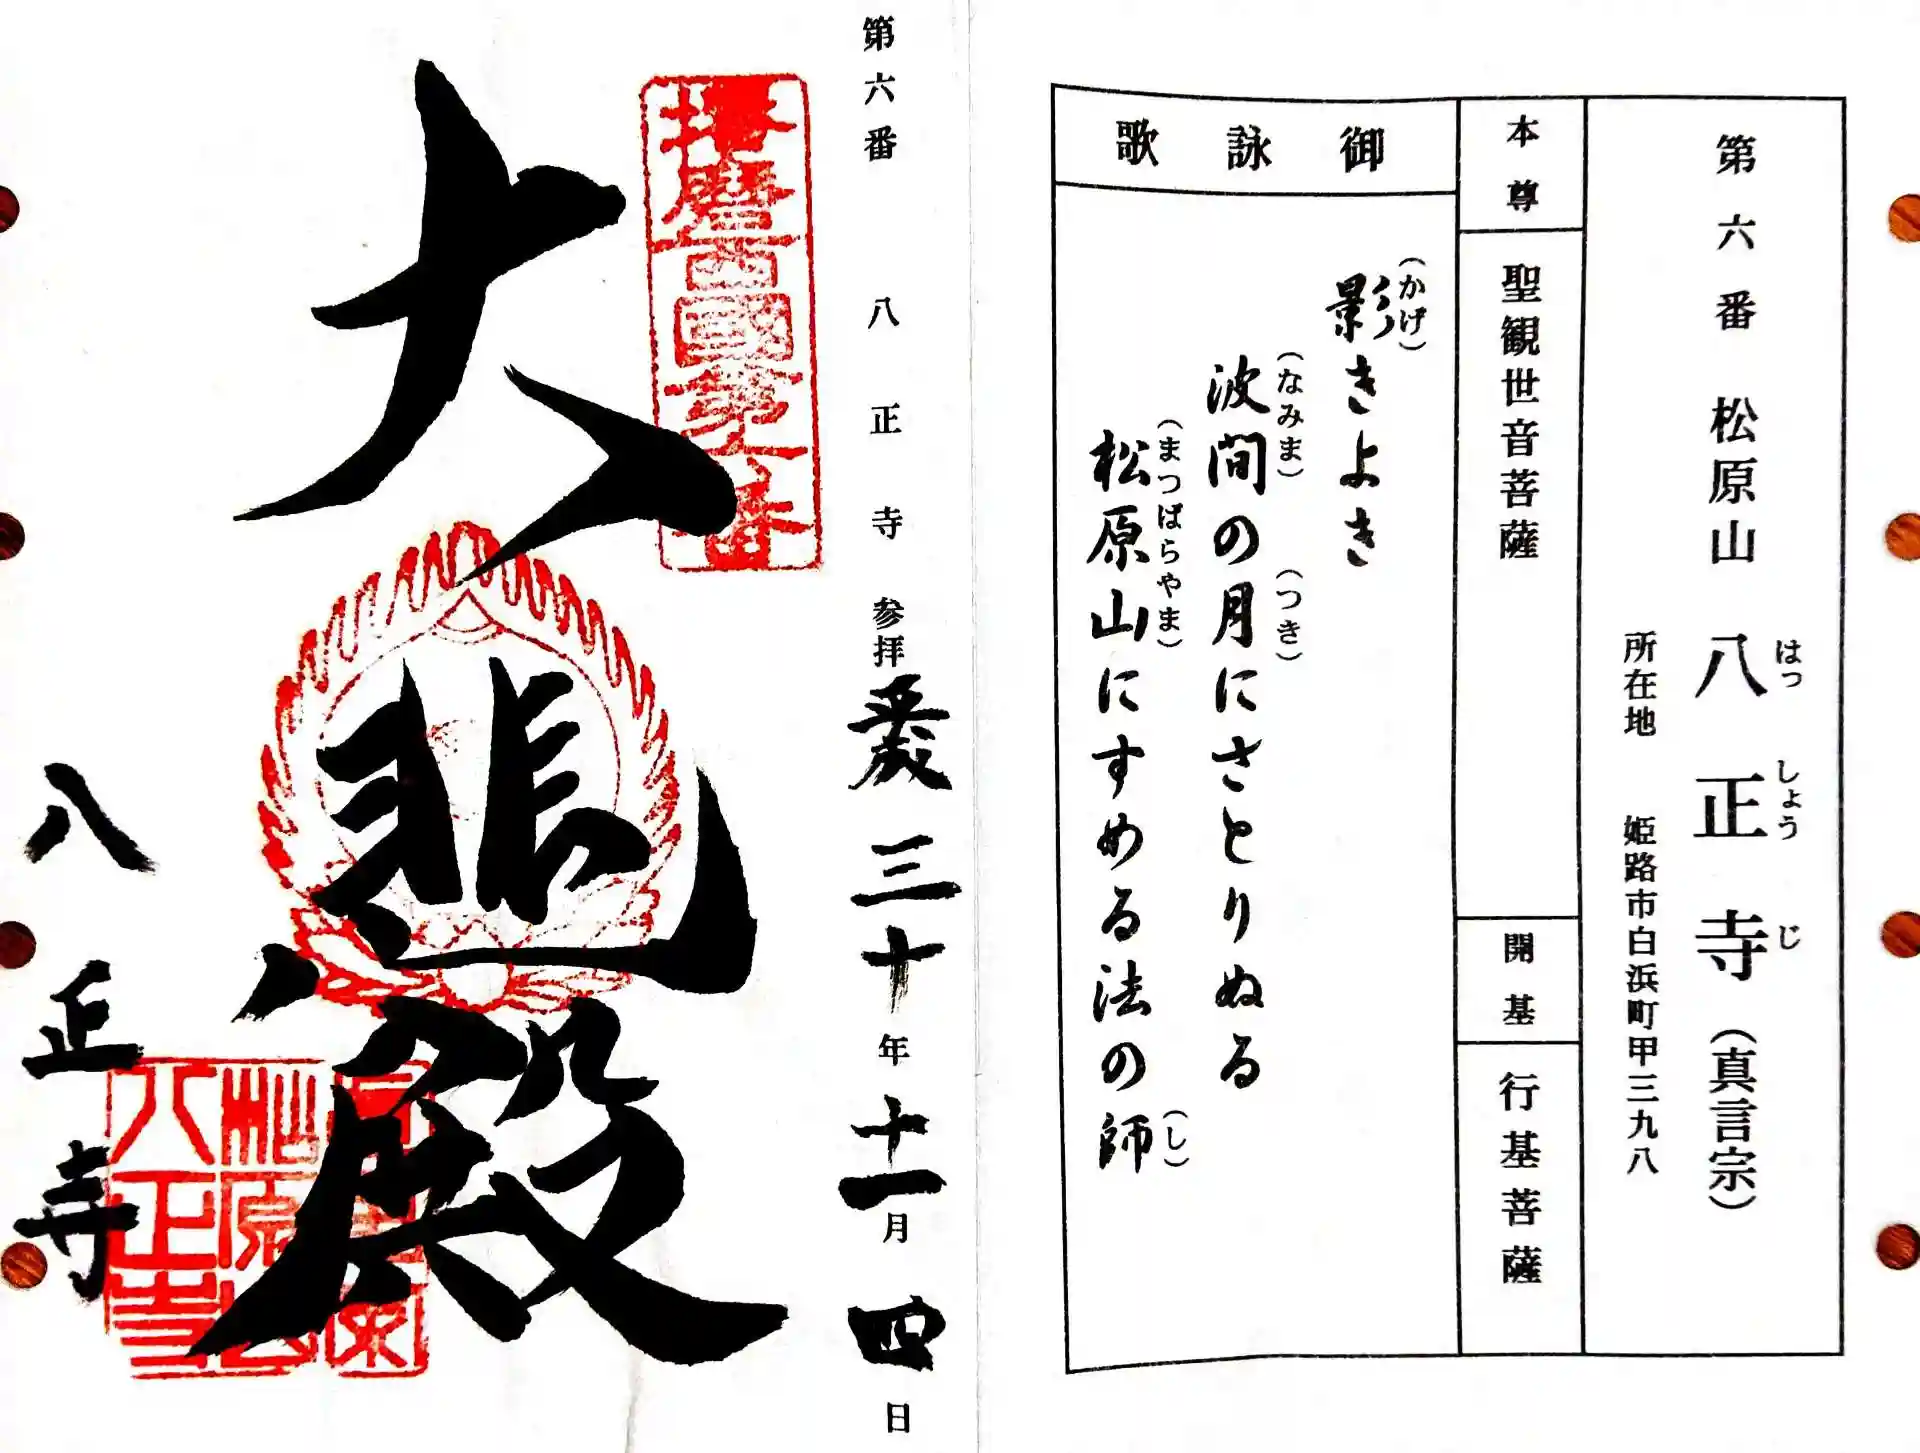 第六番 松原山 八正寺(真言宗)
はっしょうじ
所在地 姫路市白浜町甲三九八
本尊
聖観世音菩薩
開基
行基菩薩
御詠歌
影きよき
(かげ)
波間の月にさとりぬる
(なみま) (つき)
松原山にすめる法の師
(まつばらやま) (し)
第六番 八正寺 参拝 平成三十年十一月四日
播磨西國第六番
大悲殿
八正寺
松原山
八正寺